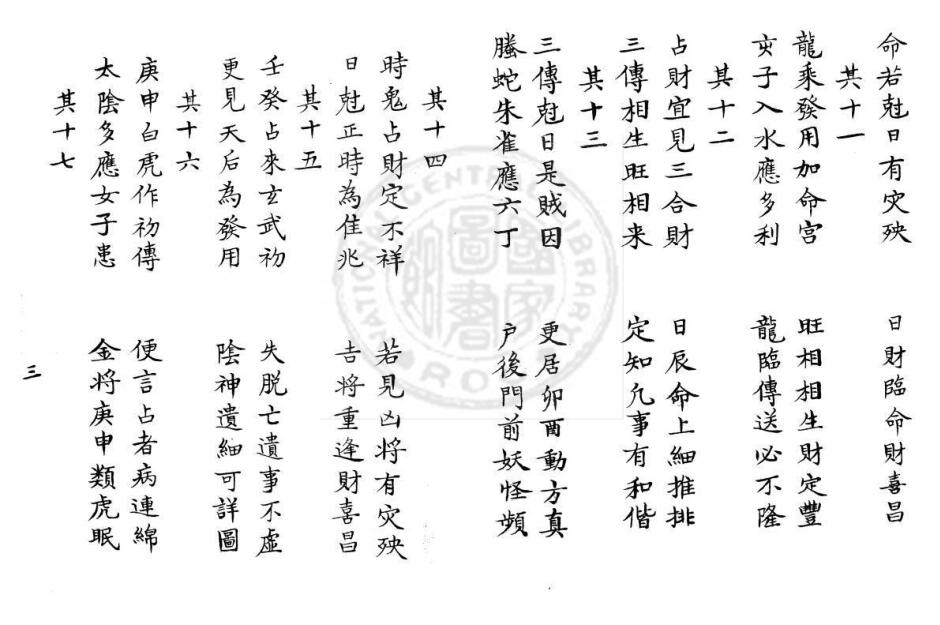 命若尅日有灾殃　日財臨命財喜昌
其十一
龍乘發用加命宮　旺相相生財定豐
亥子入水應多利　龍臨傳送必不隆
其十二
占財宜見三合財　日辰命上細推排
三傳相生旺相来　定知凢事有和偕
其十三
三傳尅日是賊因　更居卯酉動方真
螣蛇朱雀應六丁　户後門前妖怪頻
其十四
時鬼占財定不祥　若見凶將有灾殃
日尅正時為佳兆　吉將重逢財喜昌
其十五
壬癸占來玄武初　失脱亡遺事不虛
更見天后為發用　陰神遺細可詳圖
其十六
庚申白虎作初傳　便言占者病連綿
太陰多應女子患　金將庚申類虎眠
其十七
三
國家圖書館
NATIONAL CENTRAL LIBRARY
R.O.C.